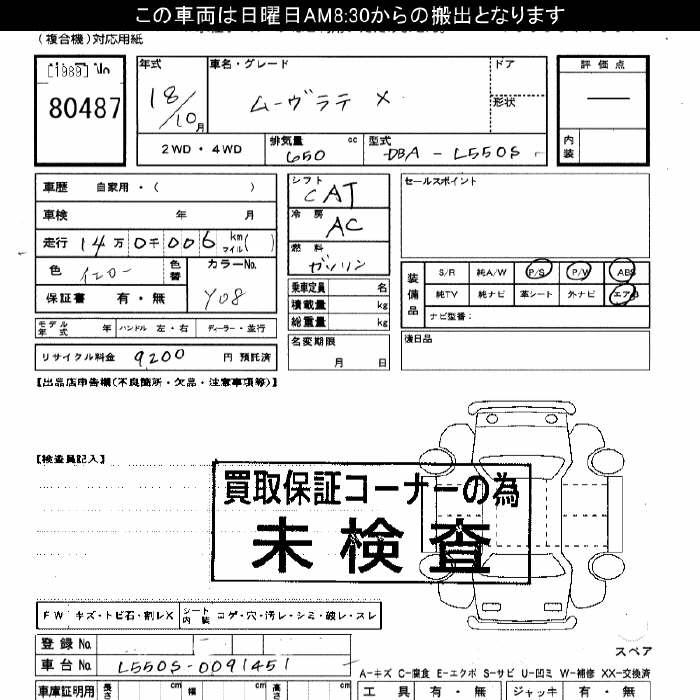 この車両は日曜日AM8:30からの搬出となります
(複合機)対応用紙
[1989] No
80487
年式
18/10月
車名・グレード
ムーヴラテ X
ドア
形状
評価点
—
内装
2WD・4WD
排気量 cc
650
型式
DBA-L550S
車歴 自家用・( )
車検 年 月
走行 14万0千006 km マイル( )
色 イエロー 色替
カラーNo.
Y08
保証書 有・無
モデル年式 年 ハンドル 左・右 ディーラー・並行
リサイクル料金 9200 円 預託済
シフト
CAT
冷房
AC
燃料
ガソリン
乗車定員 名
積載量 kg
総重量 kg
名変期限
月 日
セールスポイント
装備品
S/R 純A/W P/S P/W ABS
純TV 純ナビ 革シート 外ナビ エアB
ナビ型番:
後日品
【出品店申告欄(不良箇所・欠品・注意事項等)】
【検査員記入】
買取保証コーナーの為
未検査
FW キズ・トビ石・割レX シート内装 コゲ・穴・汚レ・シミ・破レ・スレ
登録No.
車台No. L550S-0091451
車庫証明用 長さ cm 幅 cm 高さ cm
スペア
A-キズ C-腐食 E-エクボ S-サビ U-凹ミ W-補修 XX-交換済
工具 有・無 ジャッキ 有・無